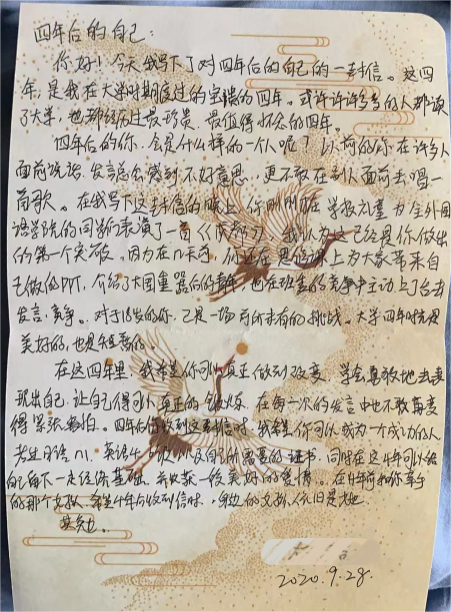 四年后的自己：
你好！今天我写下了对四年后的自己的一封信。这四
年，是我在大学时期度过的宝贵的四年。或许许许多多的人都读
了大学，也都经历过最珍贵、最值得怀念的四年。
四年后的你，会是什么样的一个人呢？以前的你在许多人
面前说话、发言总会感到不好意思，更不敢在别人面前去唱一
首歌。在我写下这封信的晚上，你刚刚在学校礼堂为全外国
语学院的同学们表演了一首《成都》。我认为这已经是你做出
的第一个突破。因为在几天前，你还在思修课上为大家带来自
己做的PPT，介绍了大国重器后的青年，也在班委的竞争中主动上了台去
发言、竞争。对于18岁的你，已是一场前所未有的挑战。大学四年时光是
美好的，也是短暂的。
在这四年里，我希望你可以真正做到改变，学会勇敢地去表
现出自己，让自己得到真正的锻炼，在每一次的发言中也不敢再变
得紧张、害怕。四年后收到这封信时，我希望你可以成为一个成功的人
考过日语N1、英语4、6级以及自己所需要的证书，同时在这4年可以给
自己留下一定经济基础，并收获一段美好的爱情。在4年前和你牵手
的那个女孩，希望4年后收到信时，身边的女孩依旧是她
2020.9.28.